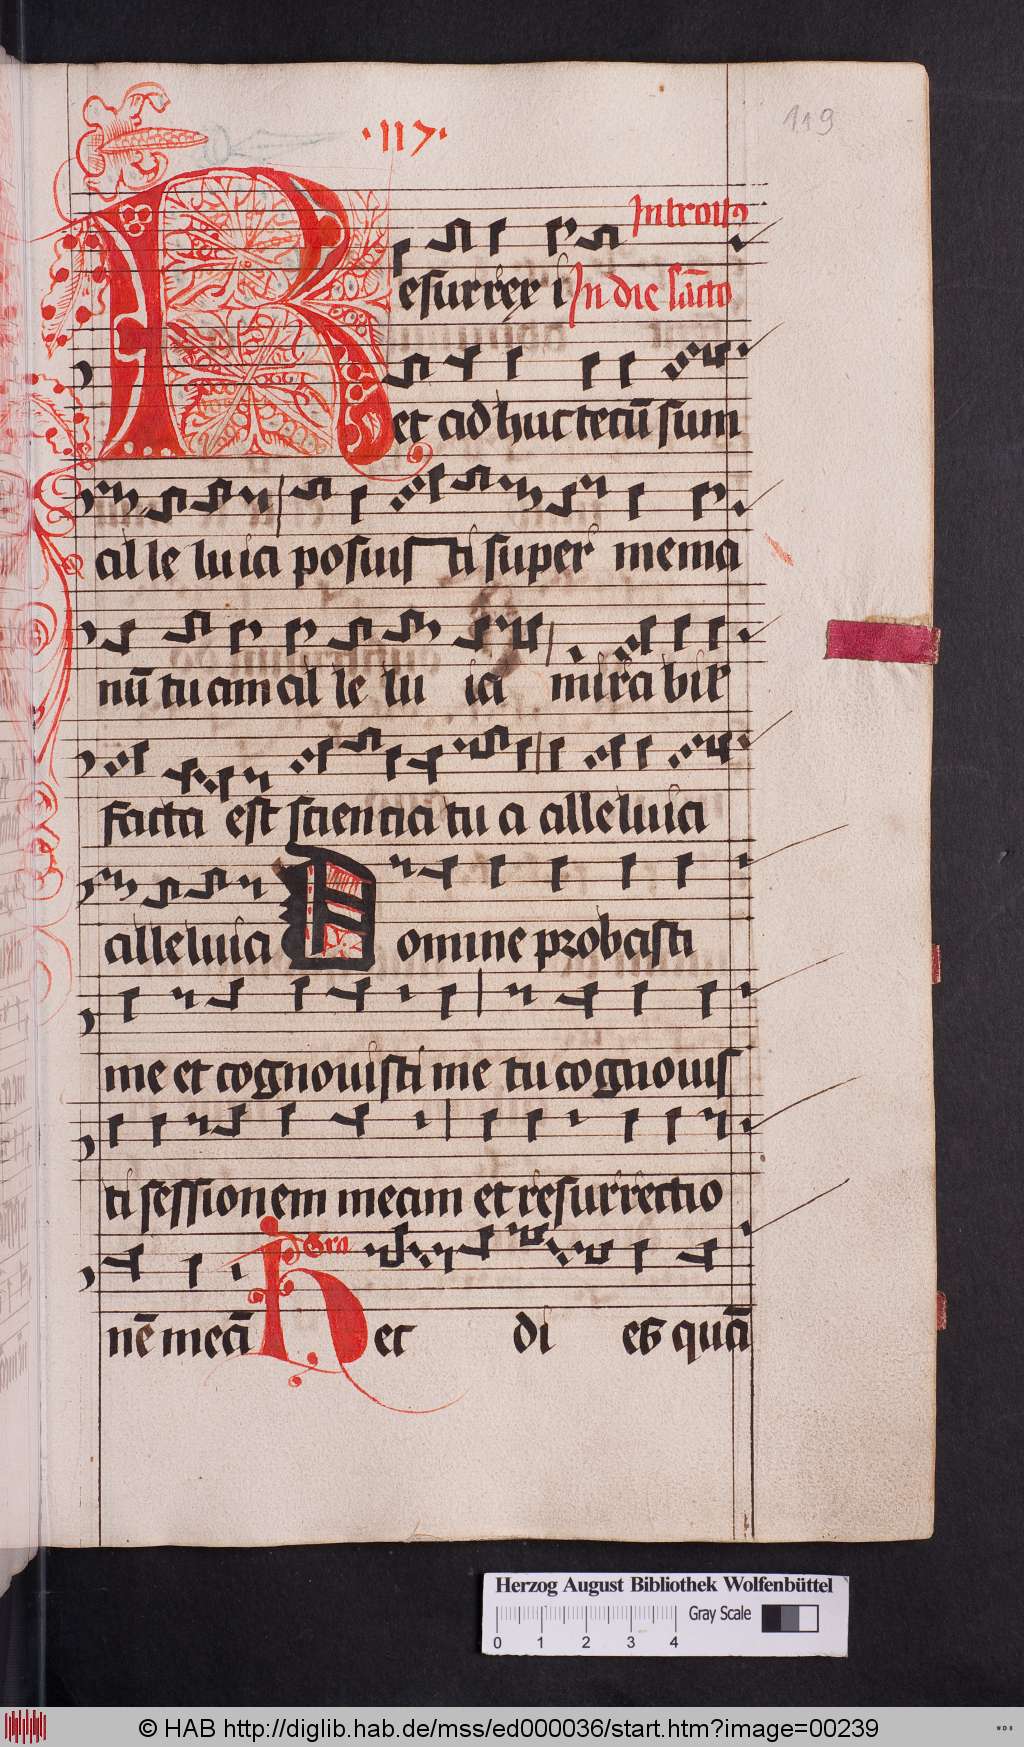 ·117·
119
Introitꝰ
Resurrex i In die sācto
et ad huc tecū sum
al le luia posuis ti super me ma
nū tu am al le lu ia mira bil
facta est sciencia tu a alleluia
alleluia Domine probasti
me et cognouisti me tu cognouis
ti sessionem meam et resurrectio
Gra
nē meā Hec di es quā
Herzog August Bibliothek Wolfenbüttel
Gray Scale
0 1 2 3 4
© HAB http://diglib.hab.de/mss/ed000036/start.htm?image=00239